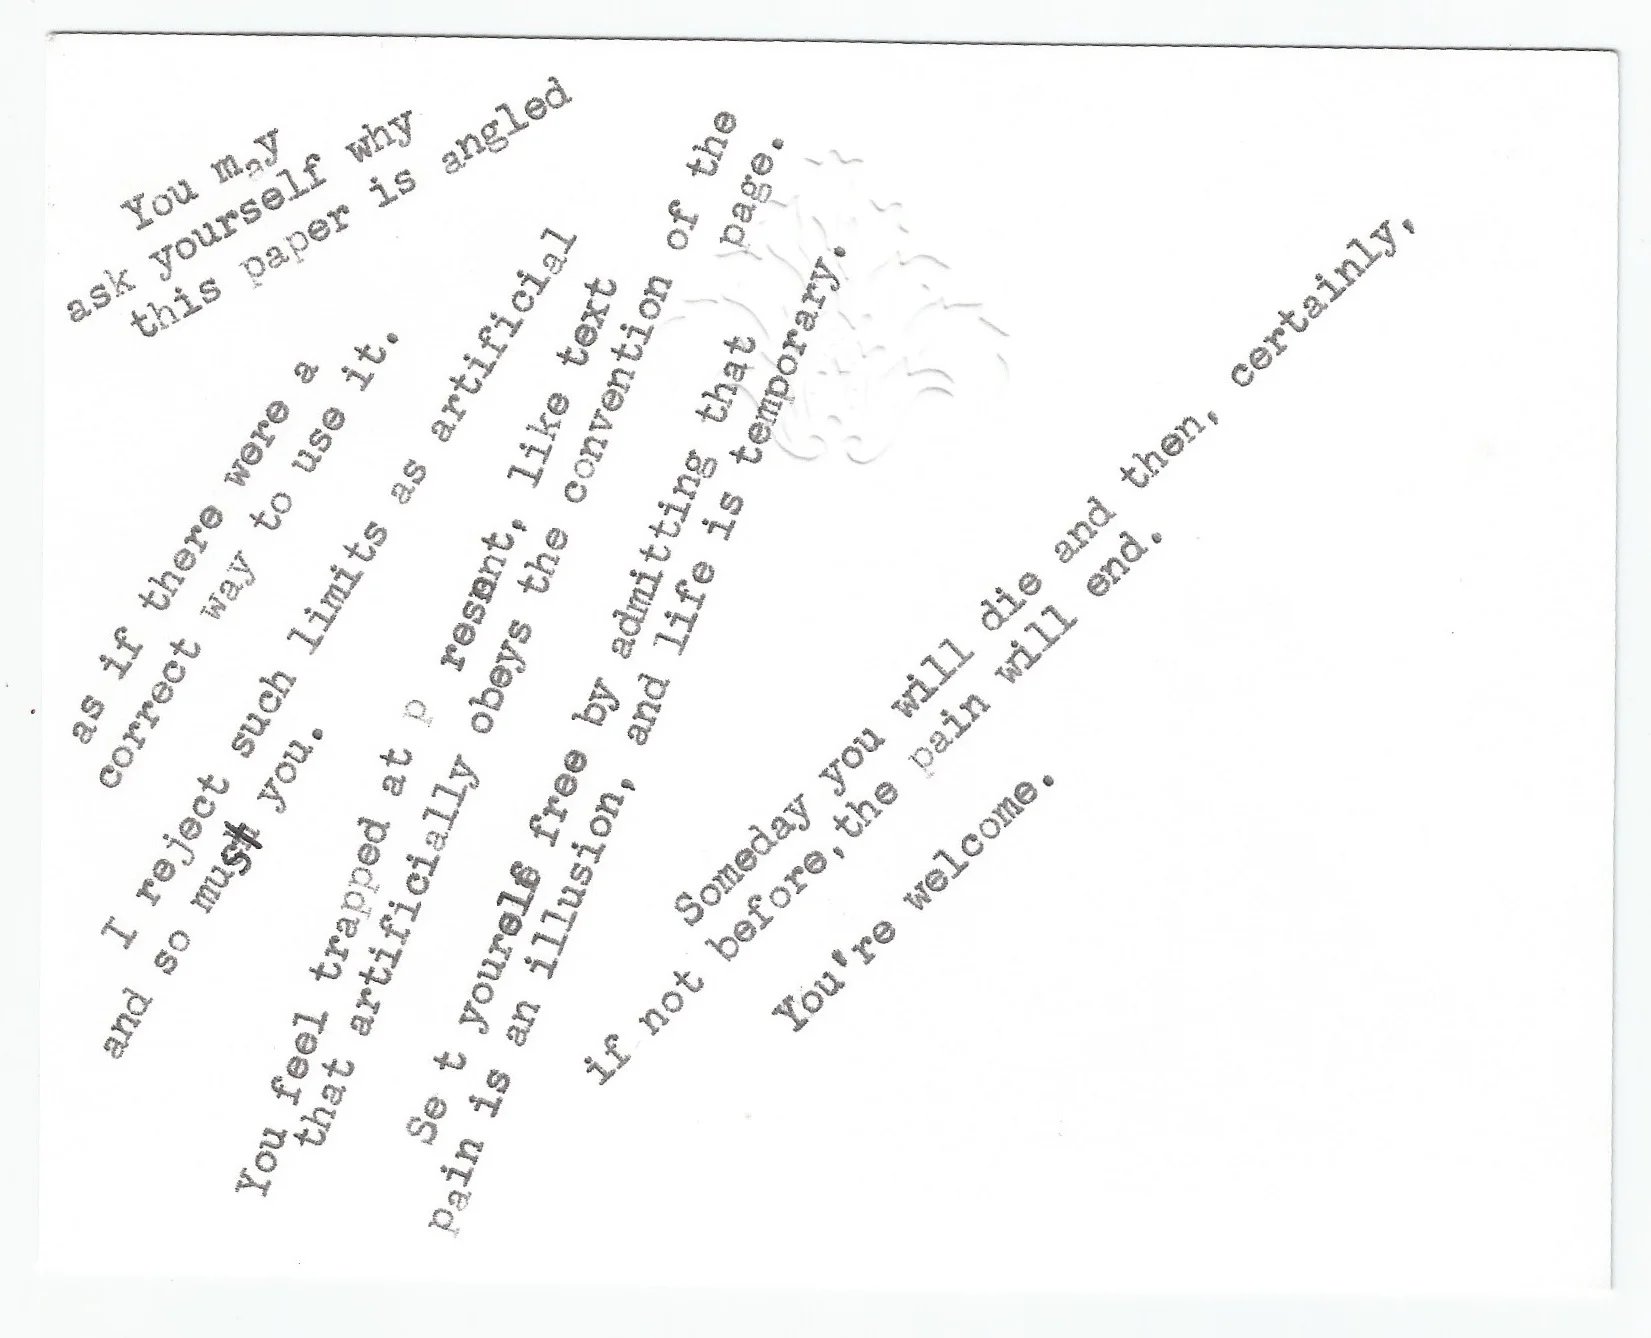 You may
ask yourself why
this paper is angled
as if there were a
correct way to use it.
I reject such limits as artificial
and so must you.
You feel trapped at p resent, like text
that artificially obeys the convention of the page.
Se t yourself free by admitting that
pain is an illusion, and life is temporary.
Someday you will die and then, certainly,
if not before, the pain will end.
You're welcome.